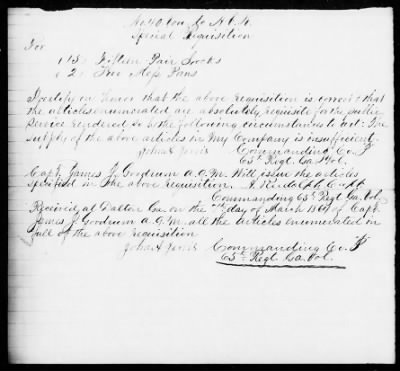 Special Requisition
For
15 Fifteen Pair Socks
2 Two Mess Pans
I certify on honor that the above requisition is correct & that
the articles enumerated are absolutely requisite for the public
service rendered so by the following circumstances to wit: The
supply of the above articles in my Company is insufficient
Commanding Co. F
65th Regt. Ga. Vol.
Capt. James J. Goodrum A.Q.M. Will issue the articles
specified in the above requisition. Capt
Commanding 65th Regt Ga. Vol.
Received at Dalton Ga on the day of March 1864 of Capt.
James J. Goodrum A.Q.M. all the articles enumerated in
full of the above requisition
Commanding Co. F
65th Regt Ga. Vol.